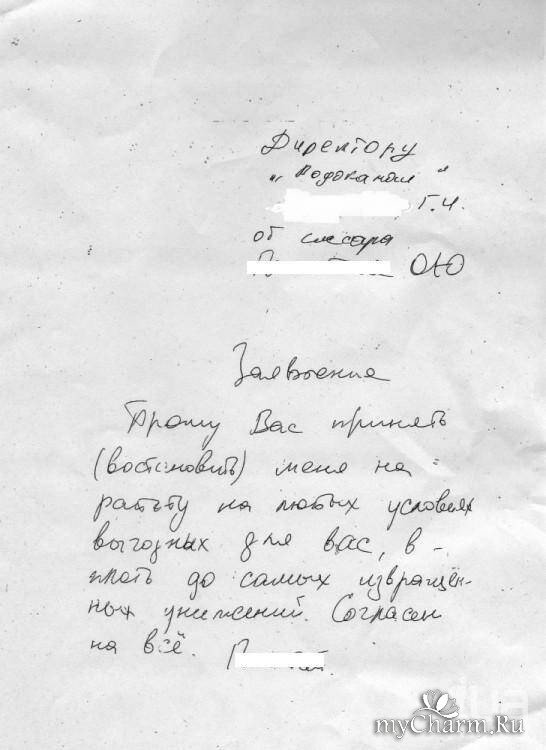 Директору
"Водоканал"
Г.И.
от слесаря
П О.Ю
Заявление
Прошу Вас принять
(востановить) меня на
работу на любых условиях
выгодных для вас, в-
плоть до самых извращён-
ных унижений. Согласен
на всё.
myCharm.Ru